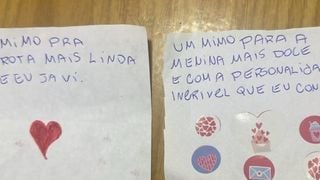 MIMO PRA
ROTA MAIS LINDA
E EU JA VI.
UM MIMO PARA A
MENINA MAIS DOCE
E COM A PERSONALIDA
INCRIVEL QUE EU CON